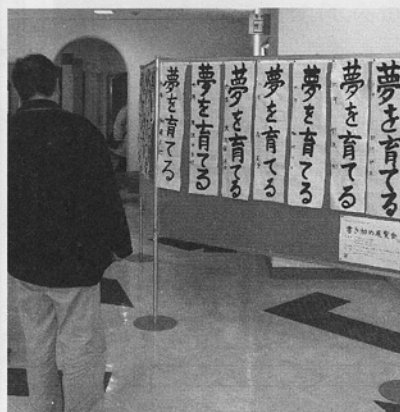 夢を育てる
夢を育てる
夢を育てる
夢を育てる
夢を育てる
夢を育てる
夢を育てる
書き初め展覧会